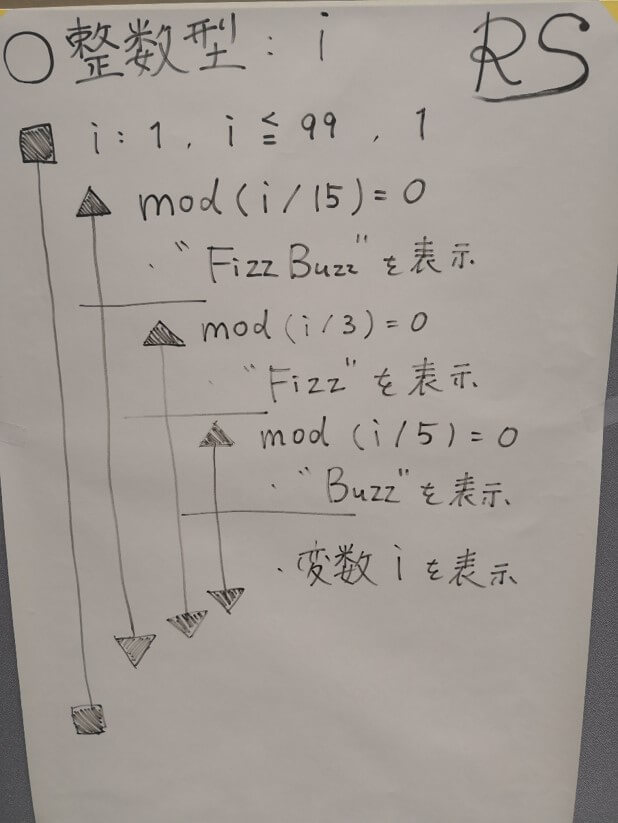 ○整数型: i
RS
i: 1, i ≦ 99, 1
mod(i/15)=0
・“FizzBuzz”を表示
mod(i/3)=0
・“Fizz”を表示
mod(i/5)=0
・“Buzz”を表示
・変数iを表示